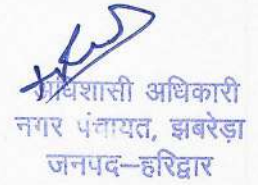 अधिशासी अधिकारी
नगर पंचायत, झबरेड़ा
जनपद–हरिद्वार